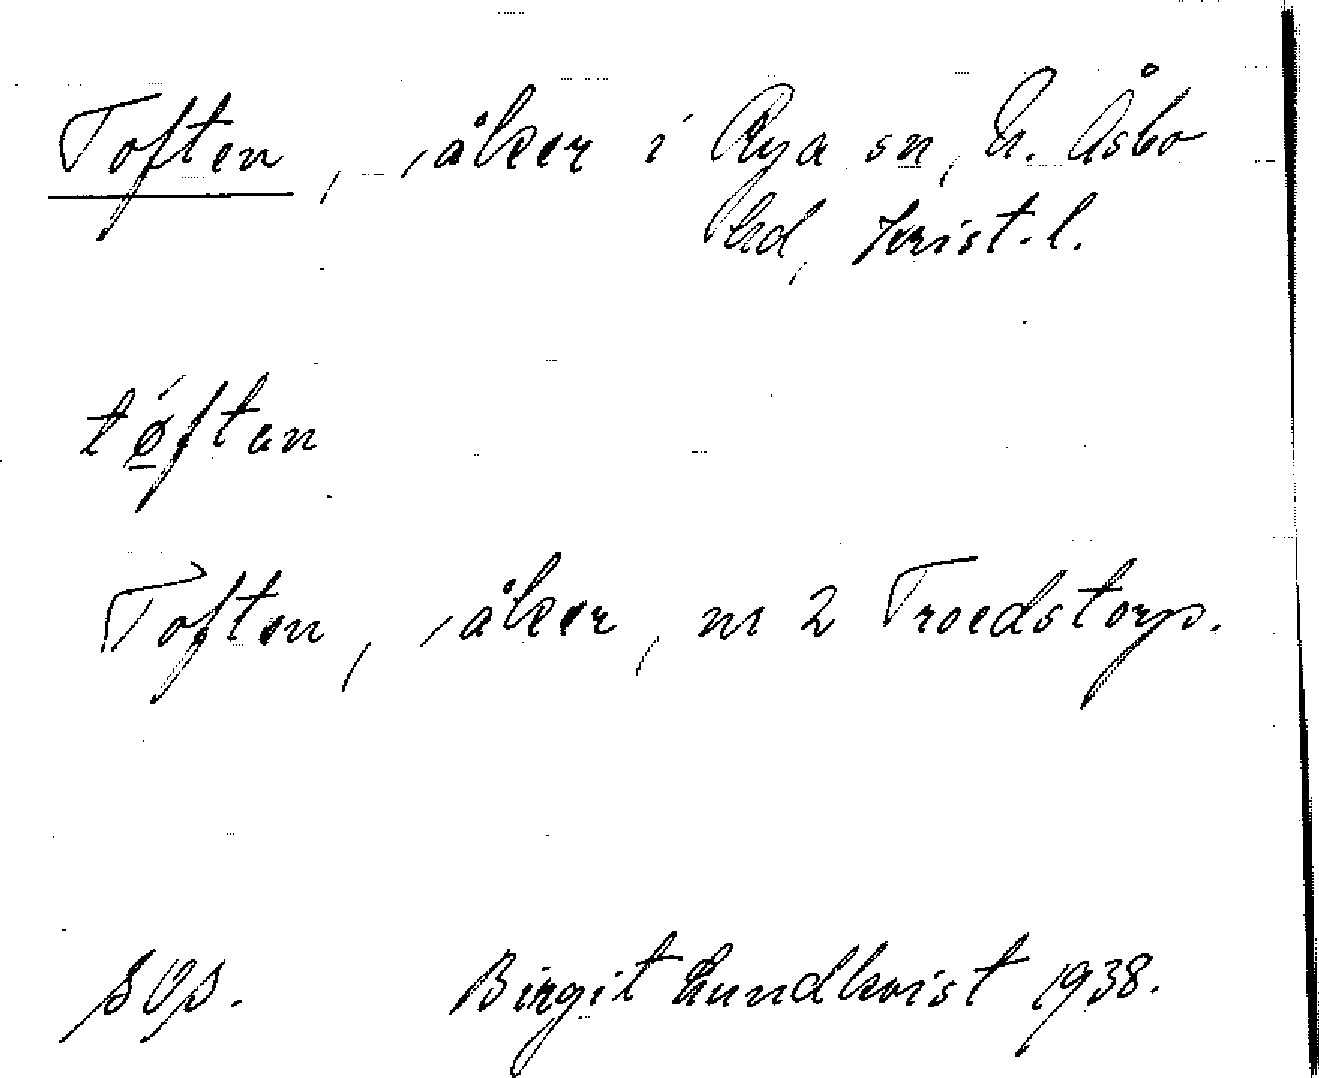 Toften, åker i Rya sn, N. Åsbo
hd, Krist. l.
tǿ̱ftan
Toften, åker, nr 2 Troedstorp.
Birgit Lundkvist 1938.